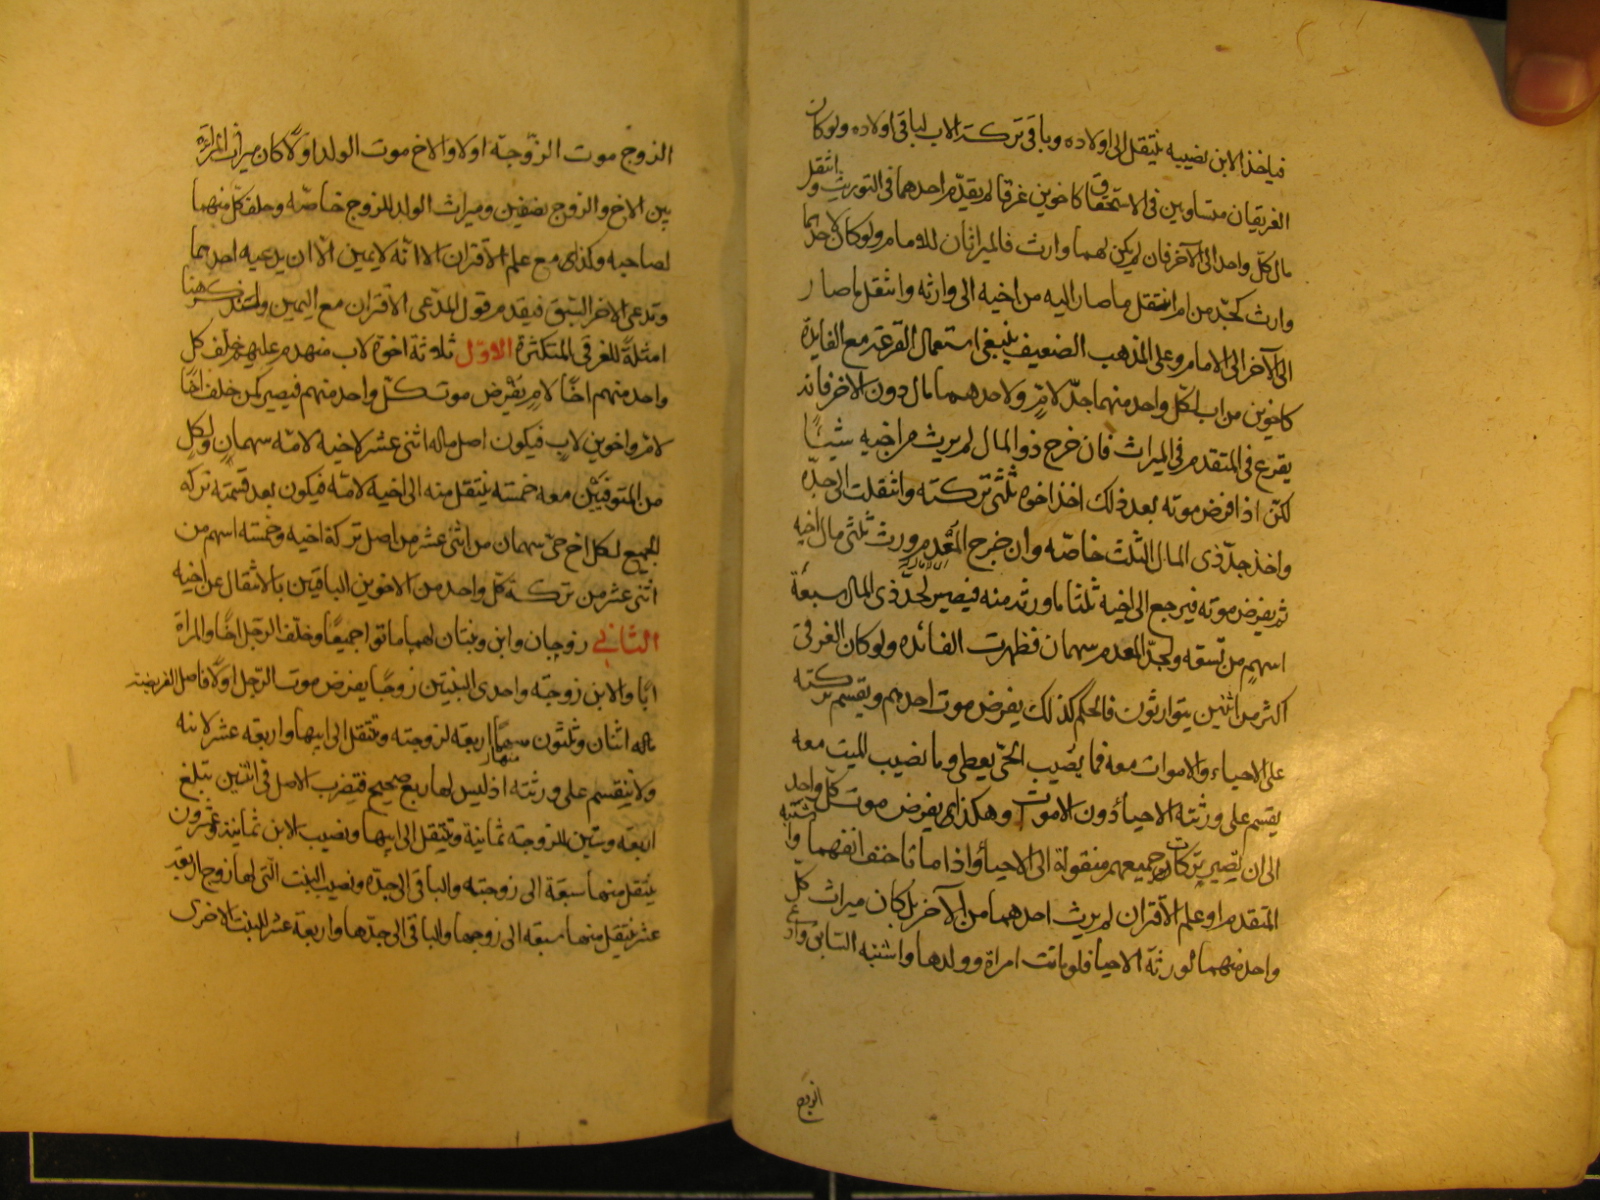 فياخذ الابن نصيبه ينتقل الى اولاده وباقى تركة الاب لباقى اولاده ولو كان
الغريقان متساويين فى الاستحقاق كاخوين غرقا لم يقدّم احدهما فى التوريث وانتقل
مال كلّ واحد الى الآخر فان لم يكن لهما وارث فالميراثان للامام ولو كان لاحدهما
وارث كجدّ من ام انتقل ما صار اليه من اخيه الى وارثه وانتقل ما صار
الى الآخر الى الامام وعلى المذهب الضعيف ينبغى استعمال القرعة مع الفايدة
كاخوين من اب لكلّ واحد منهما جدّ لامّ ولاحدهما مال دون الاخر فانه
يقرع فى المتقدم فى الميراث فان خرج ذو المال لم يرث من اخيه شيئًا
لكن اذا فرض موته بعد ذلك اخذ اخوه ثلثى تركته وانتقلت الى جدّه
واخذ جدّ ذى المال الثلث خاصّه وان خرج المعدم ورث ثلثى مال اخيه
ثم يفرض موته فيرجع الى اخيه ثلثا ما ورثه منه فيصير لجدّ ذى المال سبعة
اسهم من تسعه ولجدّ المعدم سهمان فظهرت الفائده ولو كان الغرقى
اكثر من اثنين يتوارثون فالحكم كذلك يفرض موت احدهم ويقسم تركته
على الاحياء والاموات معه فما يصيب الحىّ يعطى وما نصيب الميت معه
يقسم على ورثته الاحيأ دون الاموات وهكذا يفرض موت كلّ واحد
الى ان يصير تركات جميعهم منقولة الى الاحيأ واذا ماتا حتف انفهما واشتبه
المتقدم او علم الاقتران لم يرث احدهما من الآخر بل كان ميراث كلّ
واحد منهما لورثته الاحيا فلو ماتت امراة وولدها واشتبه السابق وادّعى
الزوج
الزوج موت الزوجة اولا والاخ موت الولد اولًا كان ميراث المراة
بين الاخ والزوج نصفين وميراث الولد للزوج خاصّه وحلف كل منهما
لصاحبه وكذا مع علم الاقتران الا انه لا يمين الا ان يدعيه احدهما
وتدعى الاخر السبق فيقدم قول المدعى الاقتران مع اليمين ولنذكر هنا
امثلةً للغرقى المتكثرة الاوّل ثلاثة اخوة لاب منهدم عليهم خلّف كل
واحد منهم اخًا لامٍ يفرض موت كلّ واحد منهم فيصير كمن خلف اخًا
لامّ واخوين لابٍ فيكون اصل ماله اثنى عشر لاخيه لامّه سهمان ولكل
من المتوفيين معه خمسه ينتقل منه الى اخيه لامّه فيكون بعد قسمته تركه
الجميع لكل اخ حىّ سهمان من اثنى عشر من اصل تركة اخيه وخمسه اسهم من
اثنى عشر من تركة كل واحد من الاخوين الباقيين بالانتقال عن اخيه
الثاني زوجان وابن وبنتان لهما ماتوا جميعًا وخلّف الرجل اخًا والمراة
ابًا والابن زوجته واحدى البنتين زوجًا يفرض موت الرّجل اولًا فاصل الفريضة
ماله اثنان وثلثون سهمًا اربعه لزوجته وتنتقل الى ابيها واربعه عشر لابنه
منها
ولا ينقسم على ورثته اذ ليس لها ربع صحيح فتضرب الاصل فى اثنين تبلغ
اربعه وستين للزوجة ثمانية وتنتقل الى ابيها ونصيب الابن ثمانية وعشرون
ينتقل منها سبعة الى زوجته والباقى الى جدّه ونصيب البنت التى لها زوج اربعه
عشر ينتقل منها سبعه الى زوجها والباقى الى جدّها واربعة عشر للبنت الاخرى